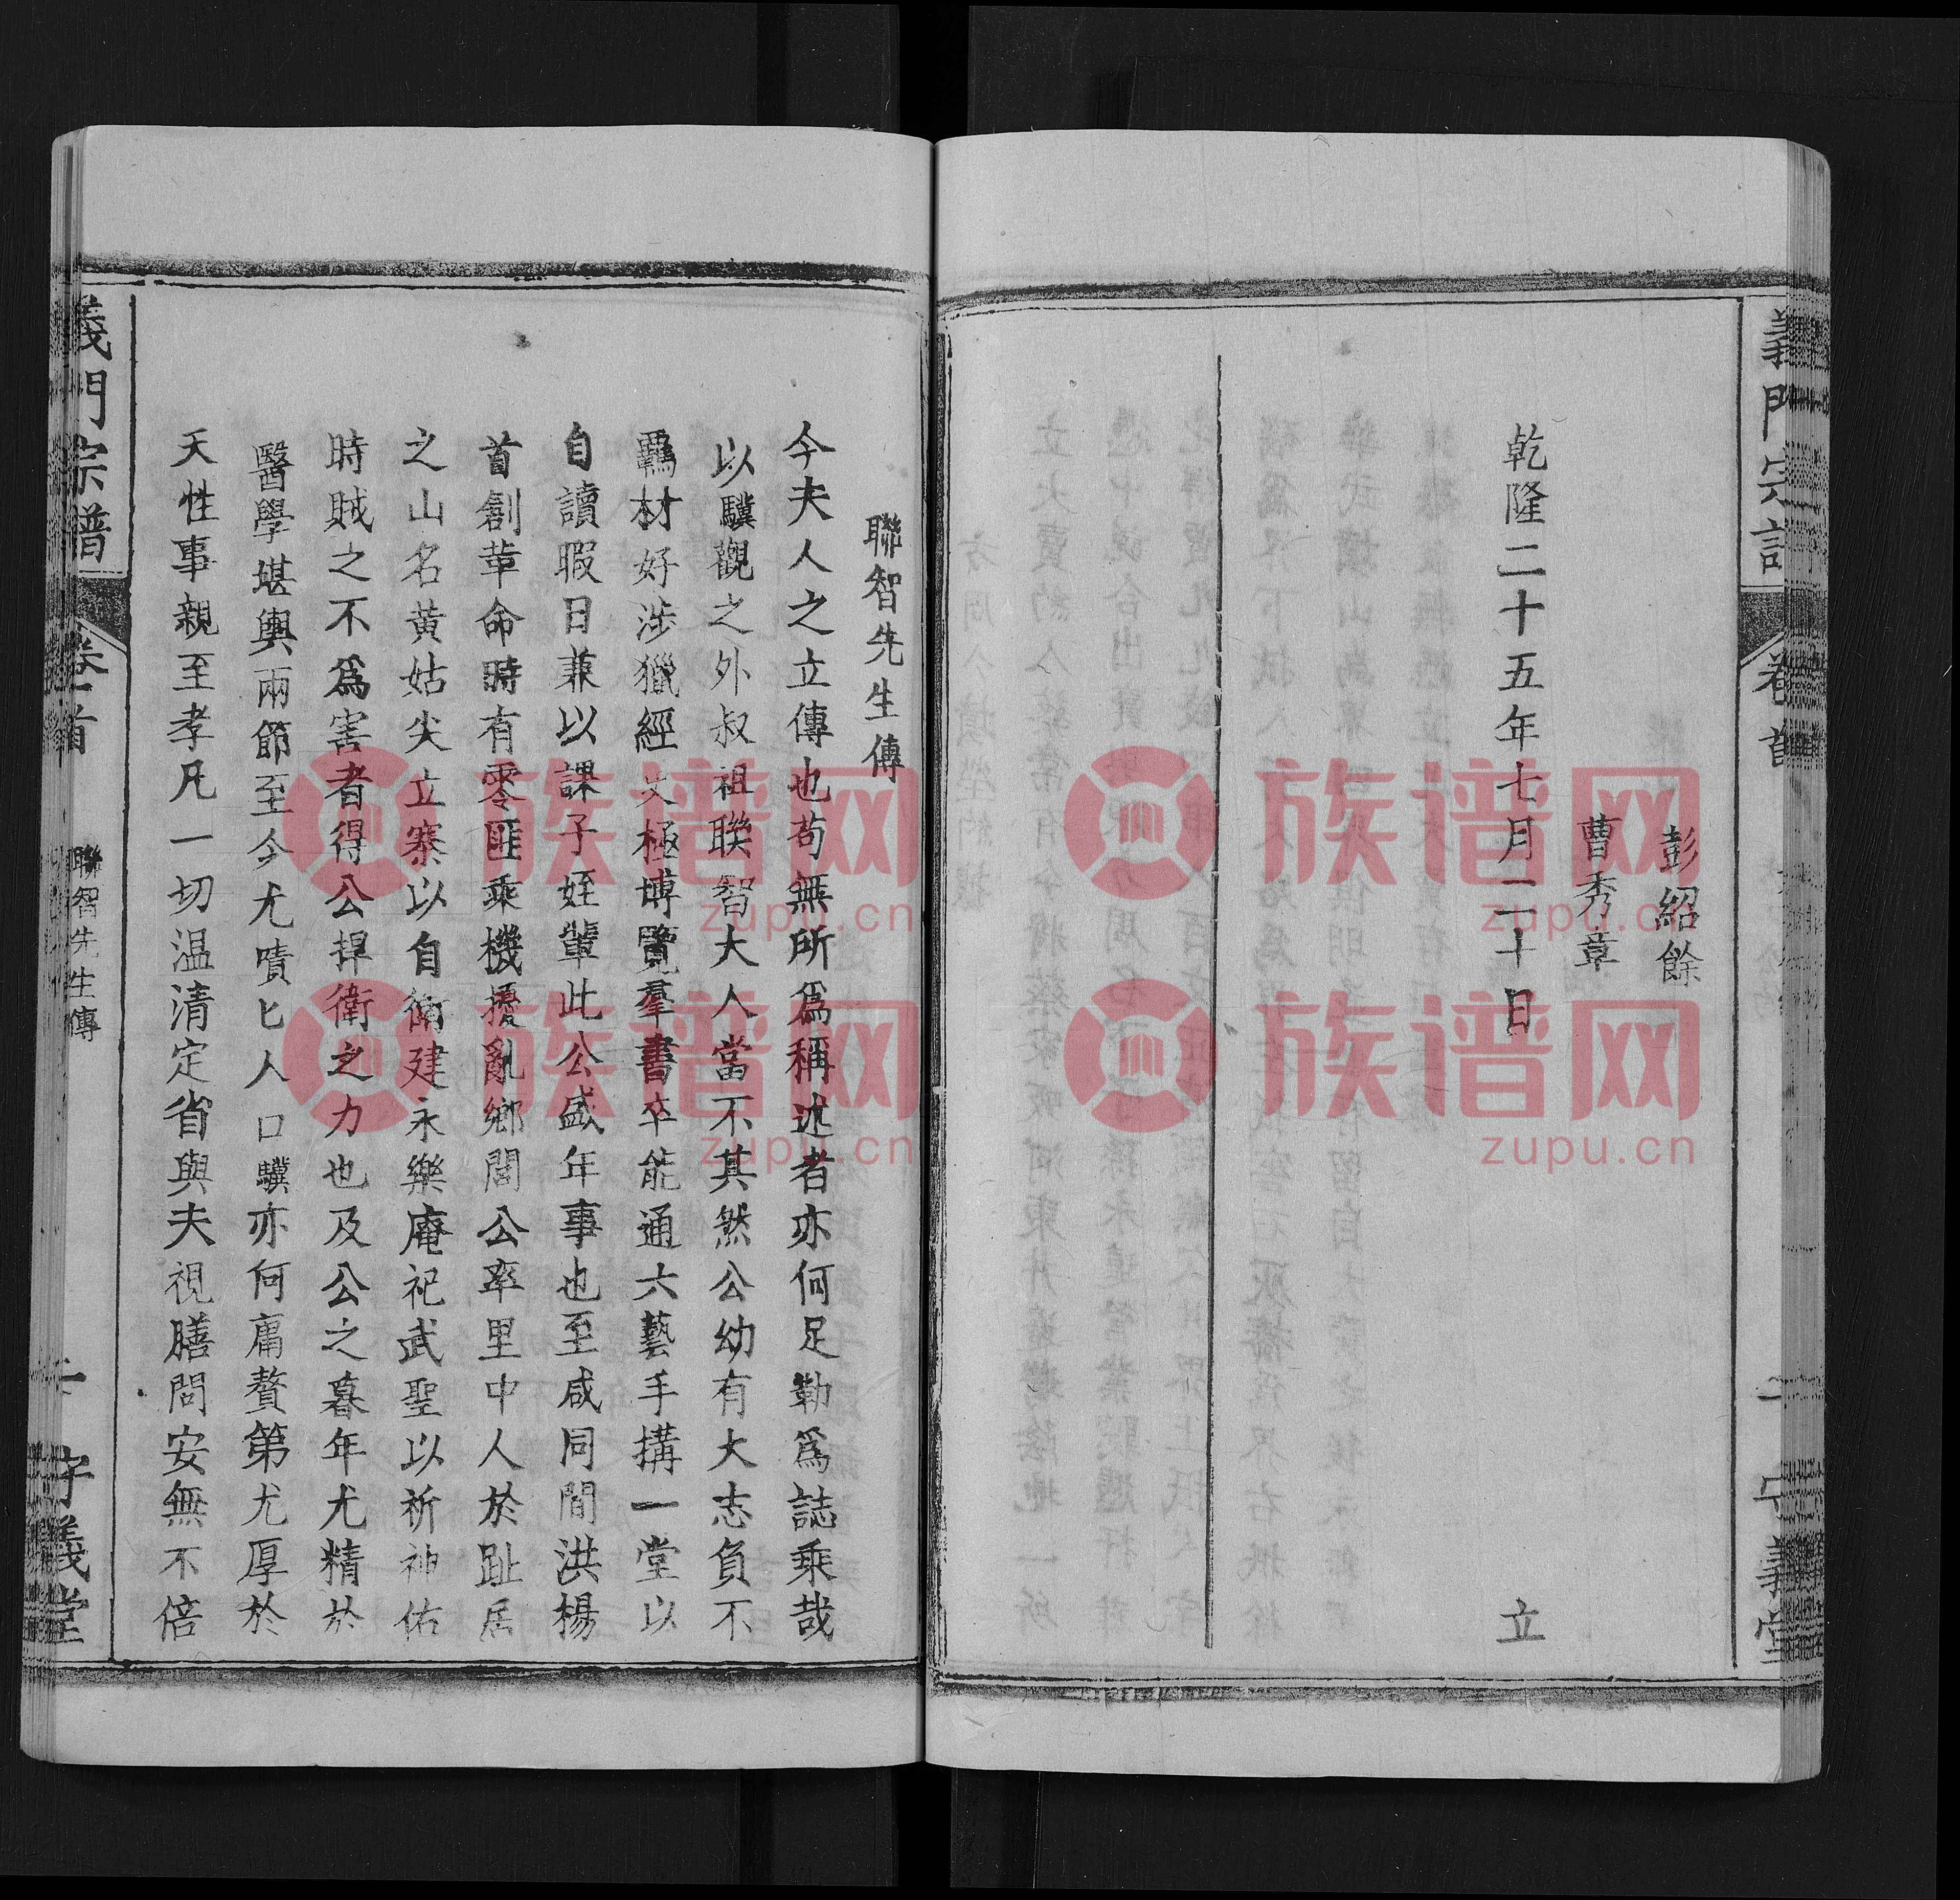 義門宗譜
卷首
守義堂
彭紹餘
曹秀章
乾隆二十五年七月二十日　立
聯智先生傳
今夫人之立傳也苟無所爲稱述者亦何足勒爲誌乘哉
以驥觀之外叔祖聯智大人當不其然公幼有大志負不
羈材好涉獵經文極博覽羣書卒能通六藝手搆一堂以
自讀暇日兼以課子姪輩此公盛年事也至咸同間洪楊
首創革命時有零匪乘機擾亂鄉閭公率里中人於趾居
之山名黄姑尖立寨以自衛建永樂庵祀武聖以祈神佑
時賊之不爲害者得公捍衛之力也及公之暮年尤精於
醫學堪輿兩節至今尤嘖匕人口驥亦何庸贅第尤厚於
天性事親至孝凡一切温清定省與夫視膳問安無不倍
義門宗譜
卷首
聯智先生傳
守義堂
族谱网
zupu.cn
族谱网
zupu.cn
族谱网
zupu.cn
族谱网
zupu.cn